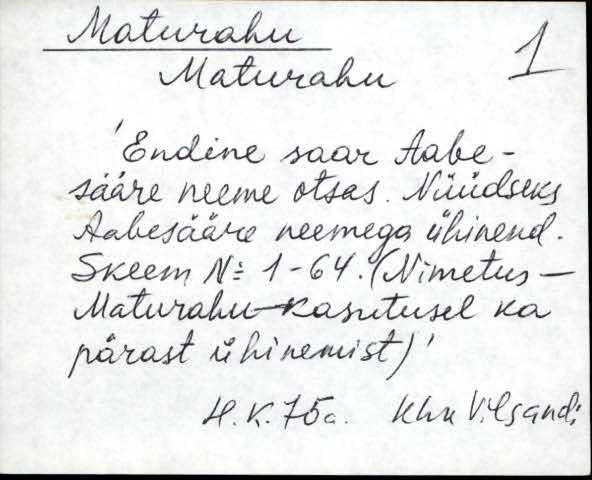 Maturahu
1
Maturahu
'Endine saar Aabe-
sääre neeme otsas. Nüüdseks
Aabesääre neemega ühinend.
Skeem № 1-64. (Nimetus —
Maturahu — kasutusel ka
pärast ühinemist)'
H.K. 75a. Khk Vilsandi